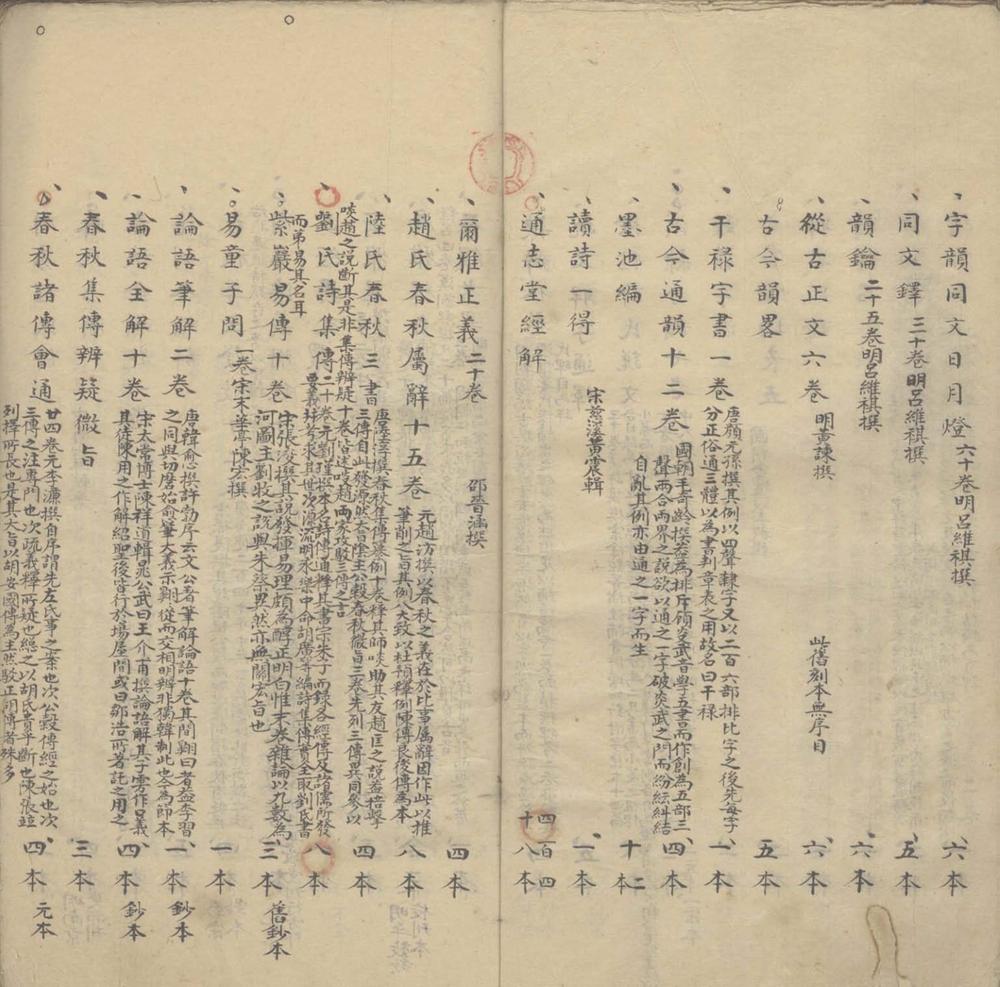 字韻同文日月燈 六十卷明呂維祺撰 六本
同文鐸 三十卷明呂維祺撰 五本
韻鑰 二十五卷明呂維祺撰 六本
從古正文六卷 明黃諫撰 此舊刻本無序目 六本
古今韻畧 五本
干祿字書一卷 唐顏元孫撰其例以四聲隸字又以二百六部排比字之後先每字
分正俗通三體以為書判章表之用故名曰干祿 一本
古今通韻十二卷 國朝毛奇齡撰葢為排斥顧炎武音學五書而作創為五部三
聲兩合兩界之說欲以通之一字破炎武之門而紛紜糾結
自亂其例亦由通之一字而生 四本
墨池編 十二本
讀詩一得 宋慈溪黃震輯 一本
通志堂經解 四百四十八本
爾雅正義二十卷 邵晉涵撰 四本
趙氏春秋屬辭十五卷 元趙汸撰以春秋之義在於比事屬辭因作此以推
筆削之旨其例八大致以杜預釋例陳傅良後傳為本 八本
陸氏春秋三書 唐陸淳撰春秋集傳纂例十卷釋其師啖助其友趙匡之說葢掊擊
三傳自此發源然杏陸主公穀春秋微旨三卷先列三傳異同參以
啖趙之說斷其是非集傳辨疑十卷皆述啖趙兩家攻駁三傳之言 四本
劉氏詩集傳二十卷 元劉瑾撰本名詩傳通釋其書宗朱子而録各經傳及諸儒所發
要義并考求其世次源流明永樂中命胡廣等編詩集傳實全取劉氏書
而弟易其名耳 八本
紫巖易傳十卷 宋張浚撰其說發揮易理頗為醇正明白惟末卷雜論以九數為
河圖主劉牧之說與朱蔡異然亦無關宏旨也 三本 舊鈔本
易童子問 一卷宋末華亭陳宏撰 一本
論語筆解二卷 唐韓愈撰許勃序云文公著筆解論語十卷其間翺曰者葢李習
之同與切磨始愈筆大義示翺從而交相明辨非獨韓制此也今為節本 一本 鈔本
論語全解十卷 宋太常博士陳祥道輯晁公武曰王介甫撰論語解其子雱作口義
其徒陳用之作解紹聖後皆行於場屋間或曰鄒浩所著託之用之 四本 鈔本
春秋集傳辨疑微旨 三本
春秋諸傳會通 廿四卷元李濂撰自序謂先左氏事之案也次公穀傳經之始也次
三傳之注專門也次疏義釋所疑也總之以胡氏貴乎斷也陳張竝
列擇所長也是其大旨以胡安國傳為主然駁正胡傳者殊多 四本 元本